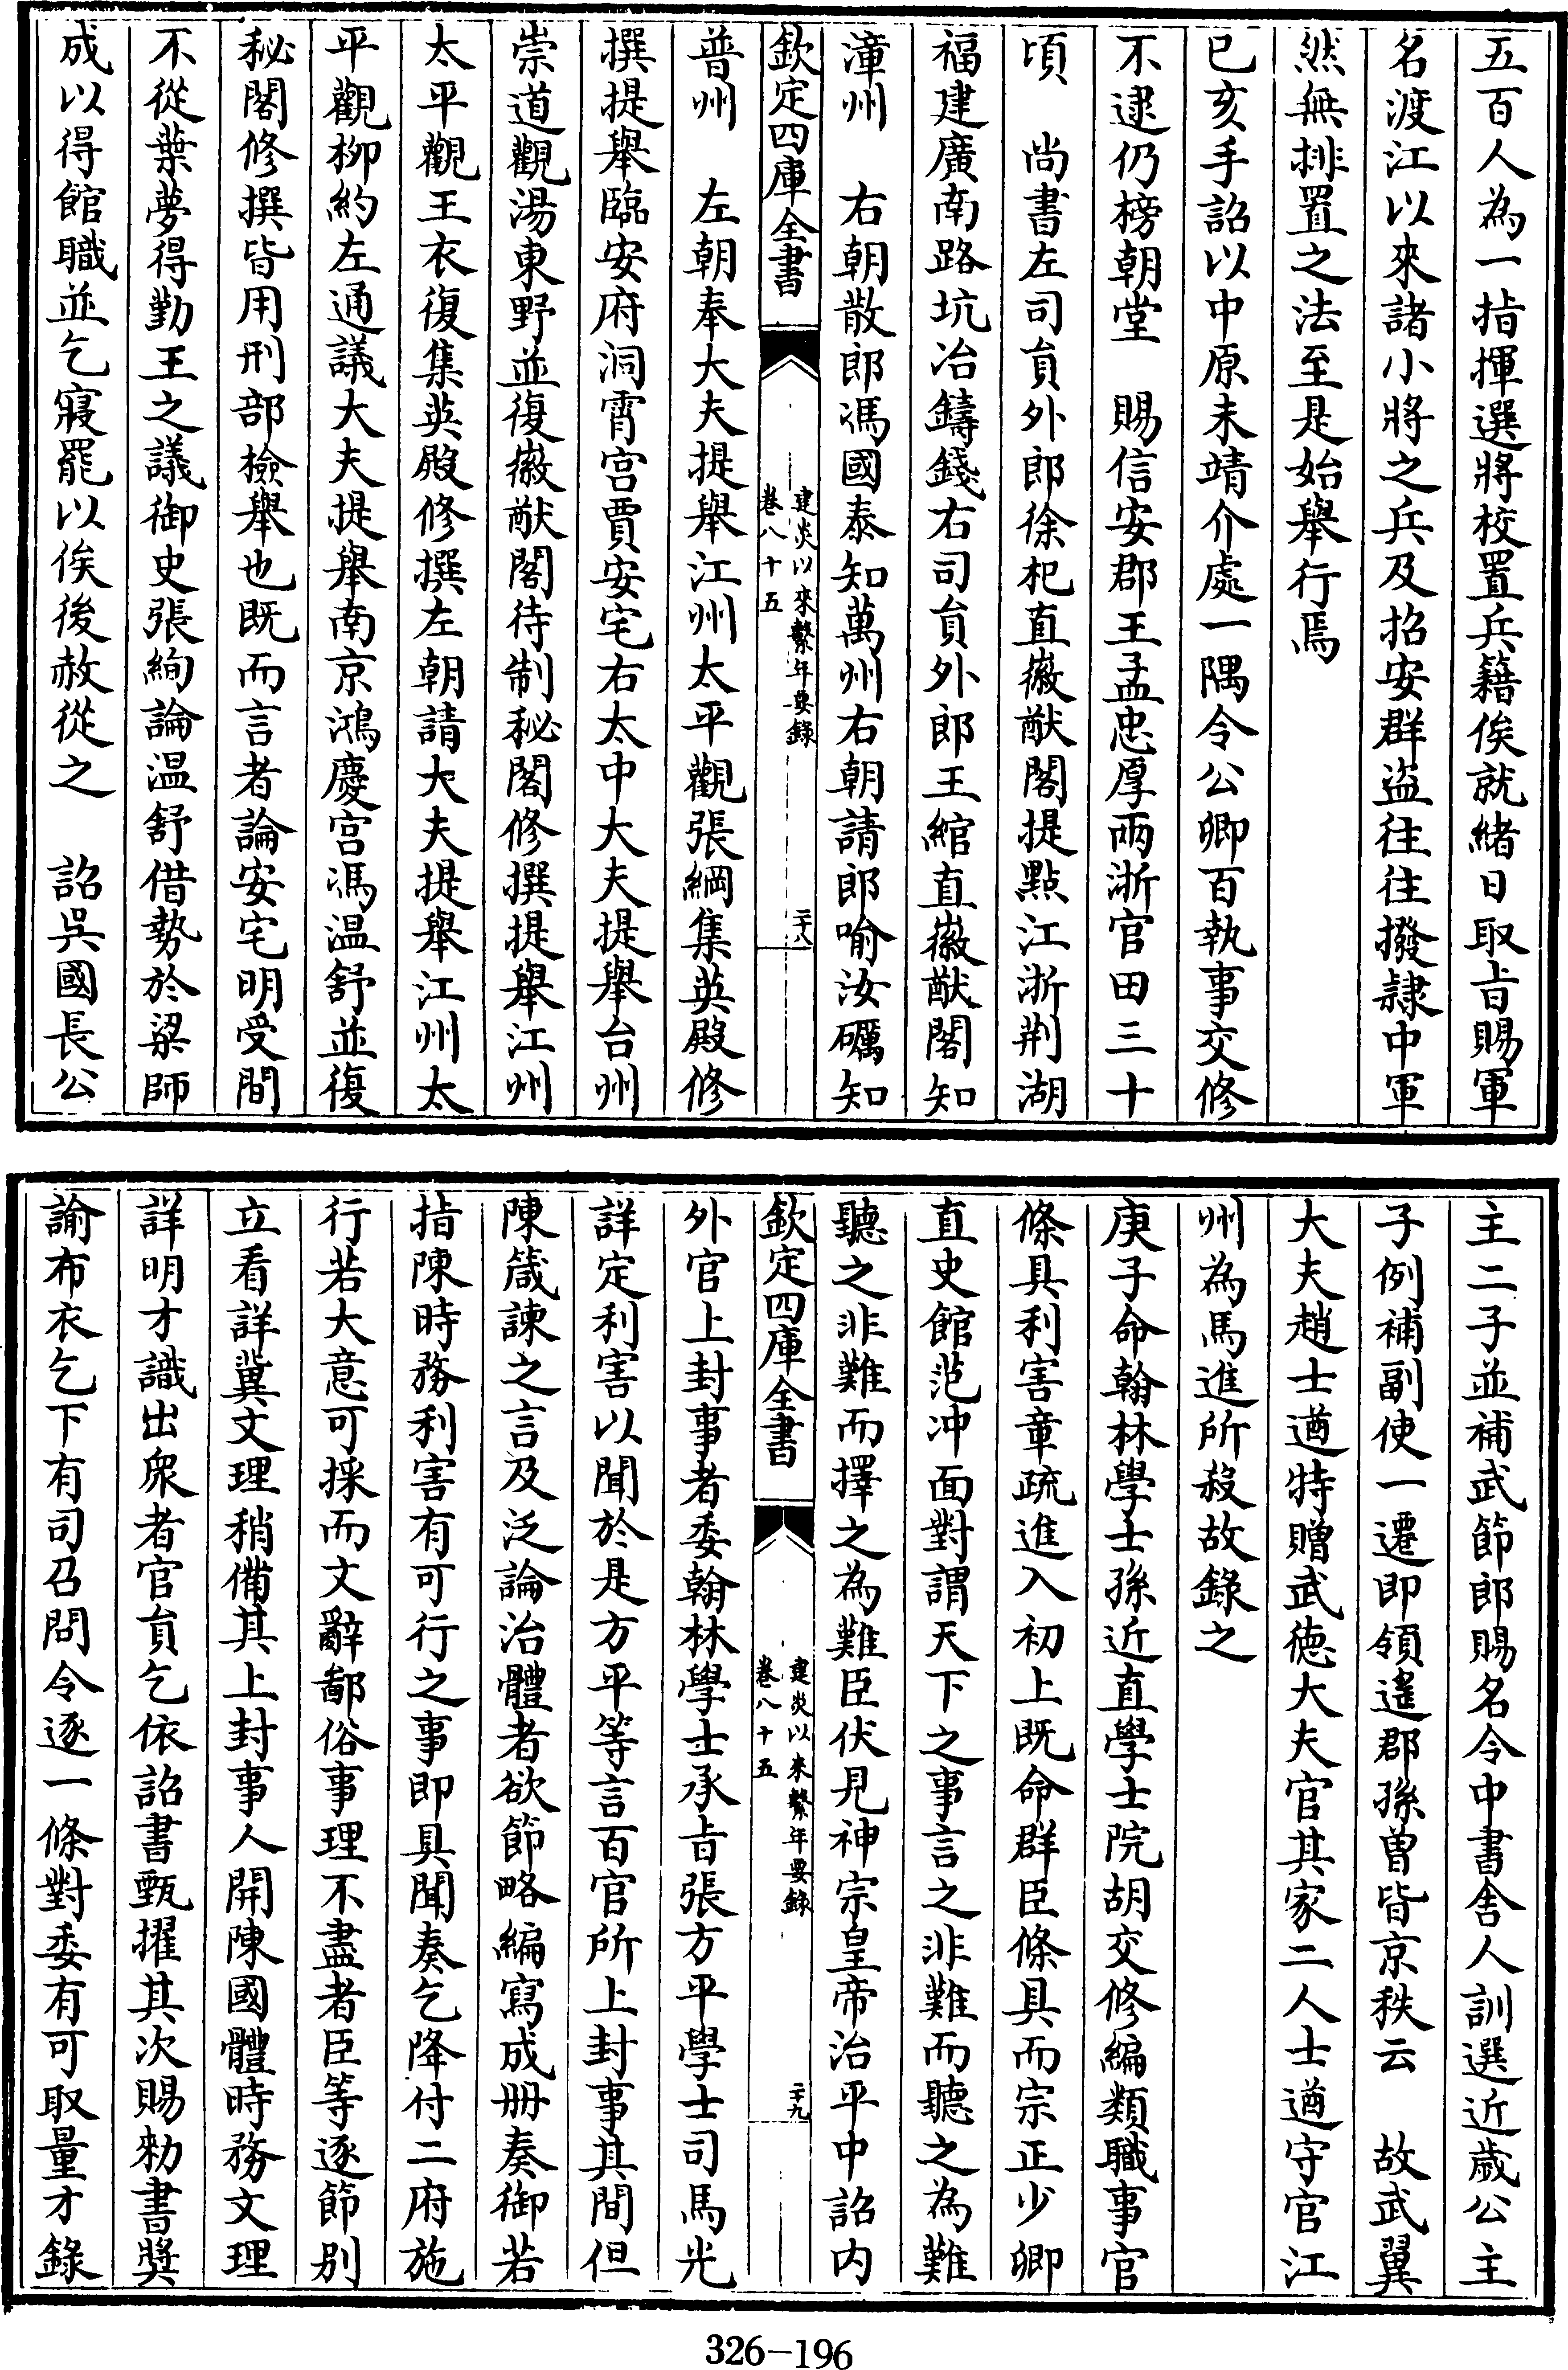 五百人為一指揮選將校置兵籍俟就緒日取㫖賜軍
名渡江以來諸小將之兵及招安群盜往往撥隷中軍
然無排置之法至是始舉行焉
已亥手詔以中原未靖介處一隅令公卿百執事交修
不逮仍榜朝堂　賜信安郡王孟忠厚兩浙官田三十
頃　尚書左司員外郎徐杞直徽猷閣提點江浙荆湖
福建廣南路坑冶鑄錢右司員外郎王綰直徽猷閣知
漳州　右朝散郎馮國泰知萬州右朝請郎喻汝礪知
欽定四庫全書
建炎以來繫年要錄
卷八十五
二十八
普州　左朝奉大夫提舉江州太平觀張綱集英殿修
撰提舉臨安府洞霄宫賈安宅右太中大夫提舉台州
崇道觀湯東野並復徽猷閣待制秘閣修撰提舉江州
太平觀王衣復集英殿修撰左朝請大夫提舉江州太
平觀柳約左通議大夫提舉南京鴻慶宫馮温舒並復
秘閣修撰皆用刑部檢舉也既而言者論安宅明受間
不從葉夢得勤王之議御史張絢論温舒借勢於梁師
成以得館職並乞寢罷以俟後赦從之　詔吳國長公
主二子並補武節郎賜名令中書舍人訓選近歲公主
子例補副使一遷即領遙郡孫曽皆京秩云　故武翼
大夫趙士遒特贈武徳大夫官其家二人士遒守官江
州為馬進所殺故錄之
庚子命翰林學士孫近直學士院胡交修編類職事官
條具利害章疏進入初上既命群臣條具而宗正少卿
直史館范冲面對謂天下之事言之非難而聽之為難
聽之非難而擇之為難臣伏見神宗皇帝治平中詔内
欽定四庫全書
建炎以來繫年要錄
卷八十五
二十九
外官上封事者委翰林學士承㫖張方平學士司馬光
詳定利害以聞於是方平等言百官所上封事其間但
陳箴諫之言及泛論治體者欲節略編寫成册奏御若
指陳時務利害有可行之事即具聞奏乞降付二府施
行若大意可採而文辭鄙俗事理不盡者臣等逐節别
立看詳冀文理稍備其上封事人開陳國體時務文理
詳明才識出衆者官員乞依詔書甄擢其次賜勑書奬
諭布衣乞下有司召問令逐一條對委有可取量才錄
326-196